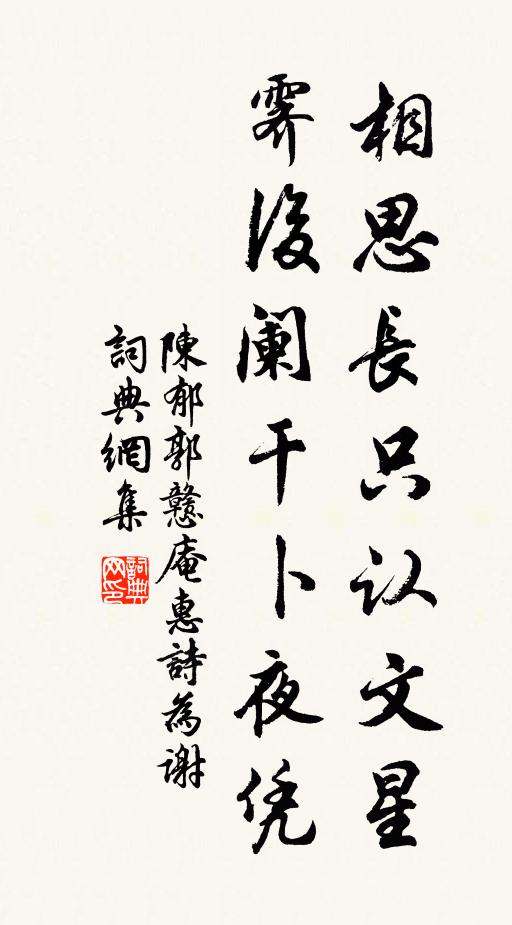 相思長只认文星
霁後阑干卜夜凭
陳郁郭戇庵惠詩為谢
詞典網集
詞典网印